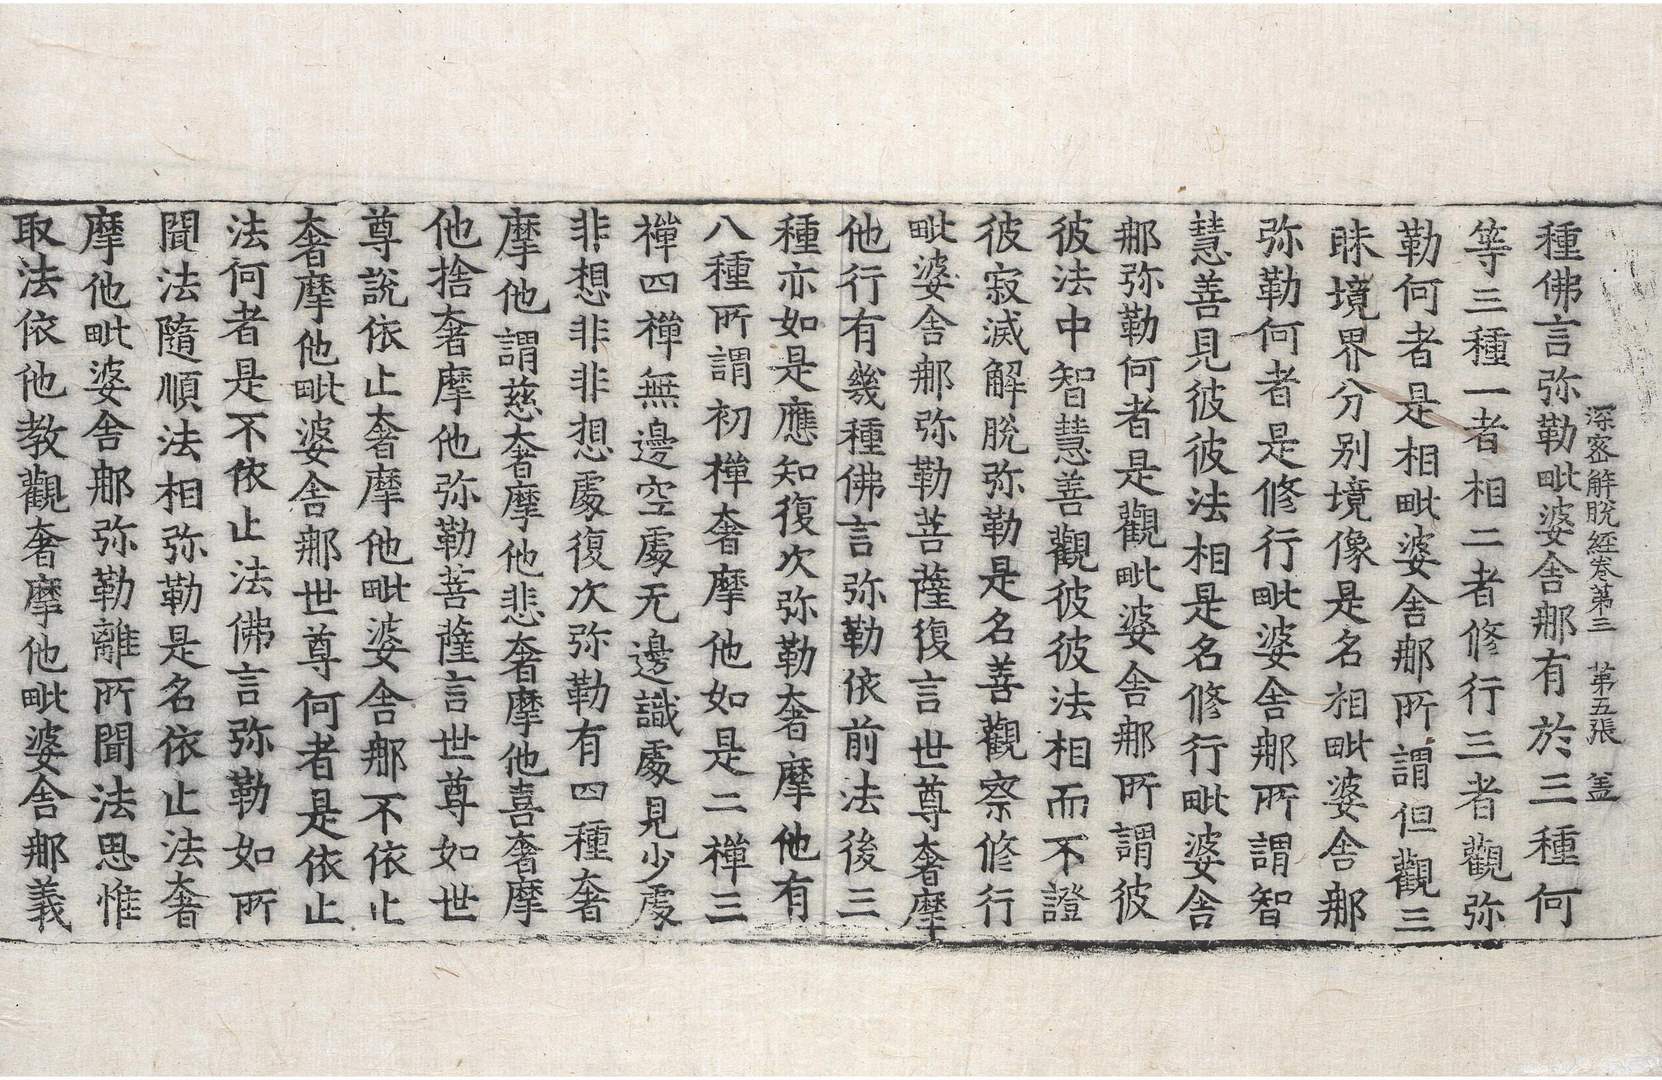 深密解脫經卷第三 第五張 盖
種佛言弥勒毗婆舍那有於三種何
等三種一者相二者修行三者觀弥
勒何者是相毗婆舍那所謂但觀三
昧境界分别境像是名相毗婆舍那
弥勒何者是修行毗婆舍那所謂智
慧善見彼彼法相是名修行毗婆舍
那弥勒何者是觀毗婆舍那所謂彼
彼法中智慧善觀彼彼法相而不證
彼寂滅解脫弥勒是名善觀察修行
毗婆舍那弥勒菩薩復言世尊奢摩
他行有幾種佛言弥勒依前法後三
種亦如是應知復次弥勒奢摩他有
八種所謂初禪奢摩他如是二禪三
禪四禪無邊空處无邊識處見少處
非想非非想處復次弥勒有四種奢
摩他謂慈奢摩他悲奢摩他喜奢摩
他捨奢摩他弥勒菩薩言世尊如世
尊說依止奢摩他毗婆舍那不依止
奢摩他毗婆舍那世尊何者是依止
法何者是不依止法佛言弥勒如所
聞法隨順法相弥勒是名依止法奢
摩他毗婆舍那弥勒離所聞法思惟
取法依他教觀奢摩他毗婆舍那義